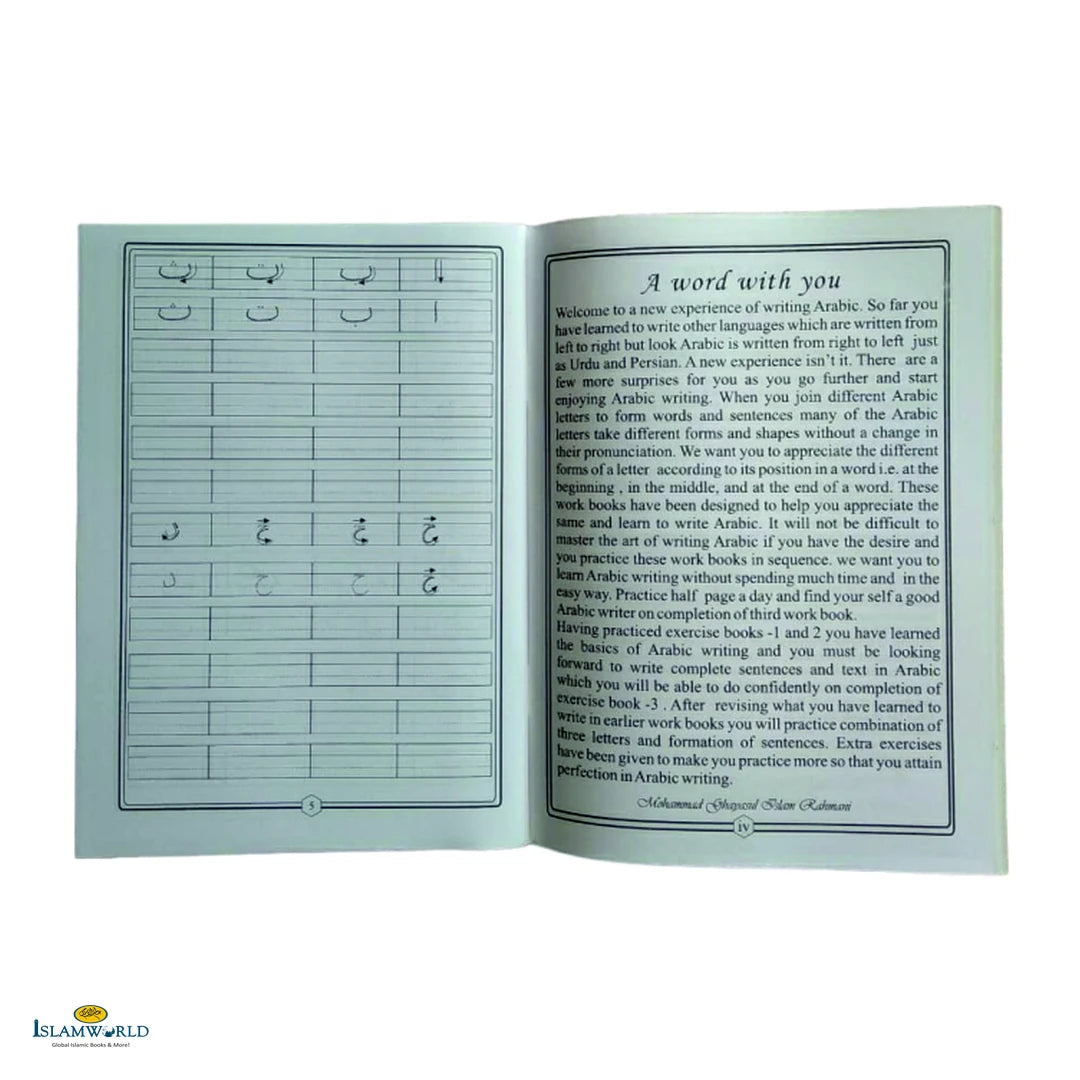 ا ب ت ث
ا ب ت ث
ج ح خ د
ج ح د
5
A word with you
Welcome to a new experience of writing Arabic. So far you
have learned to write other languages which are written from
left to right but look Arabic is written from right to left just
as Urdu and Persian. A new experience isn't it. There are a
few more surprises for you as you go further and start
enjoying Arabic writing. When you join different Arabic
letters to form words and sentences many of the Arabic
letters take different forms and shapes without a change in
their pronunciation. We want you to appreciate the different
forms of a letter according to its position in a word i.e. at the
beginning , in the middle, and at the end of a word. These
work books have been designed to help you appreciate the
same and learn to write Arabic. It will not be difficult to
master the art of writing Arabic if you have the desire and
you practice these work books in sequence. we want you to
learn Arabic writing without spending much time and in the
easy way. Practice half page a day and find your self a good
Arabic writer on completion of third work book.
Having practiced exercise books -1 and 2 you have learned
the basics of Arabic writing and you must be looking
forward to write complete sentences and text in Arabic
which you will be able to do confidently on completion of
exercise book -3 . After revising what you have learned to
write in earlier work books you will practice combination of
three letters and formation of sentences. Extra exercises
have been given to make you practice more so that you attain
perfection in Arabic writing.
Mohammad Ghayasul Islam Rahmani
iv
ISLAMWORLD
Global Islamic Books & More!